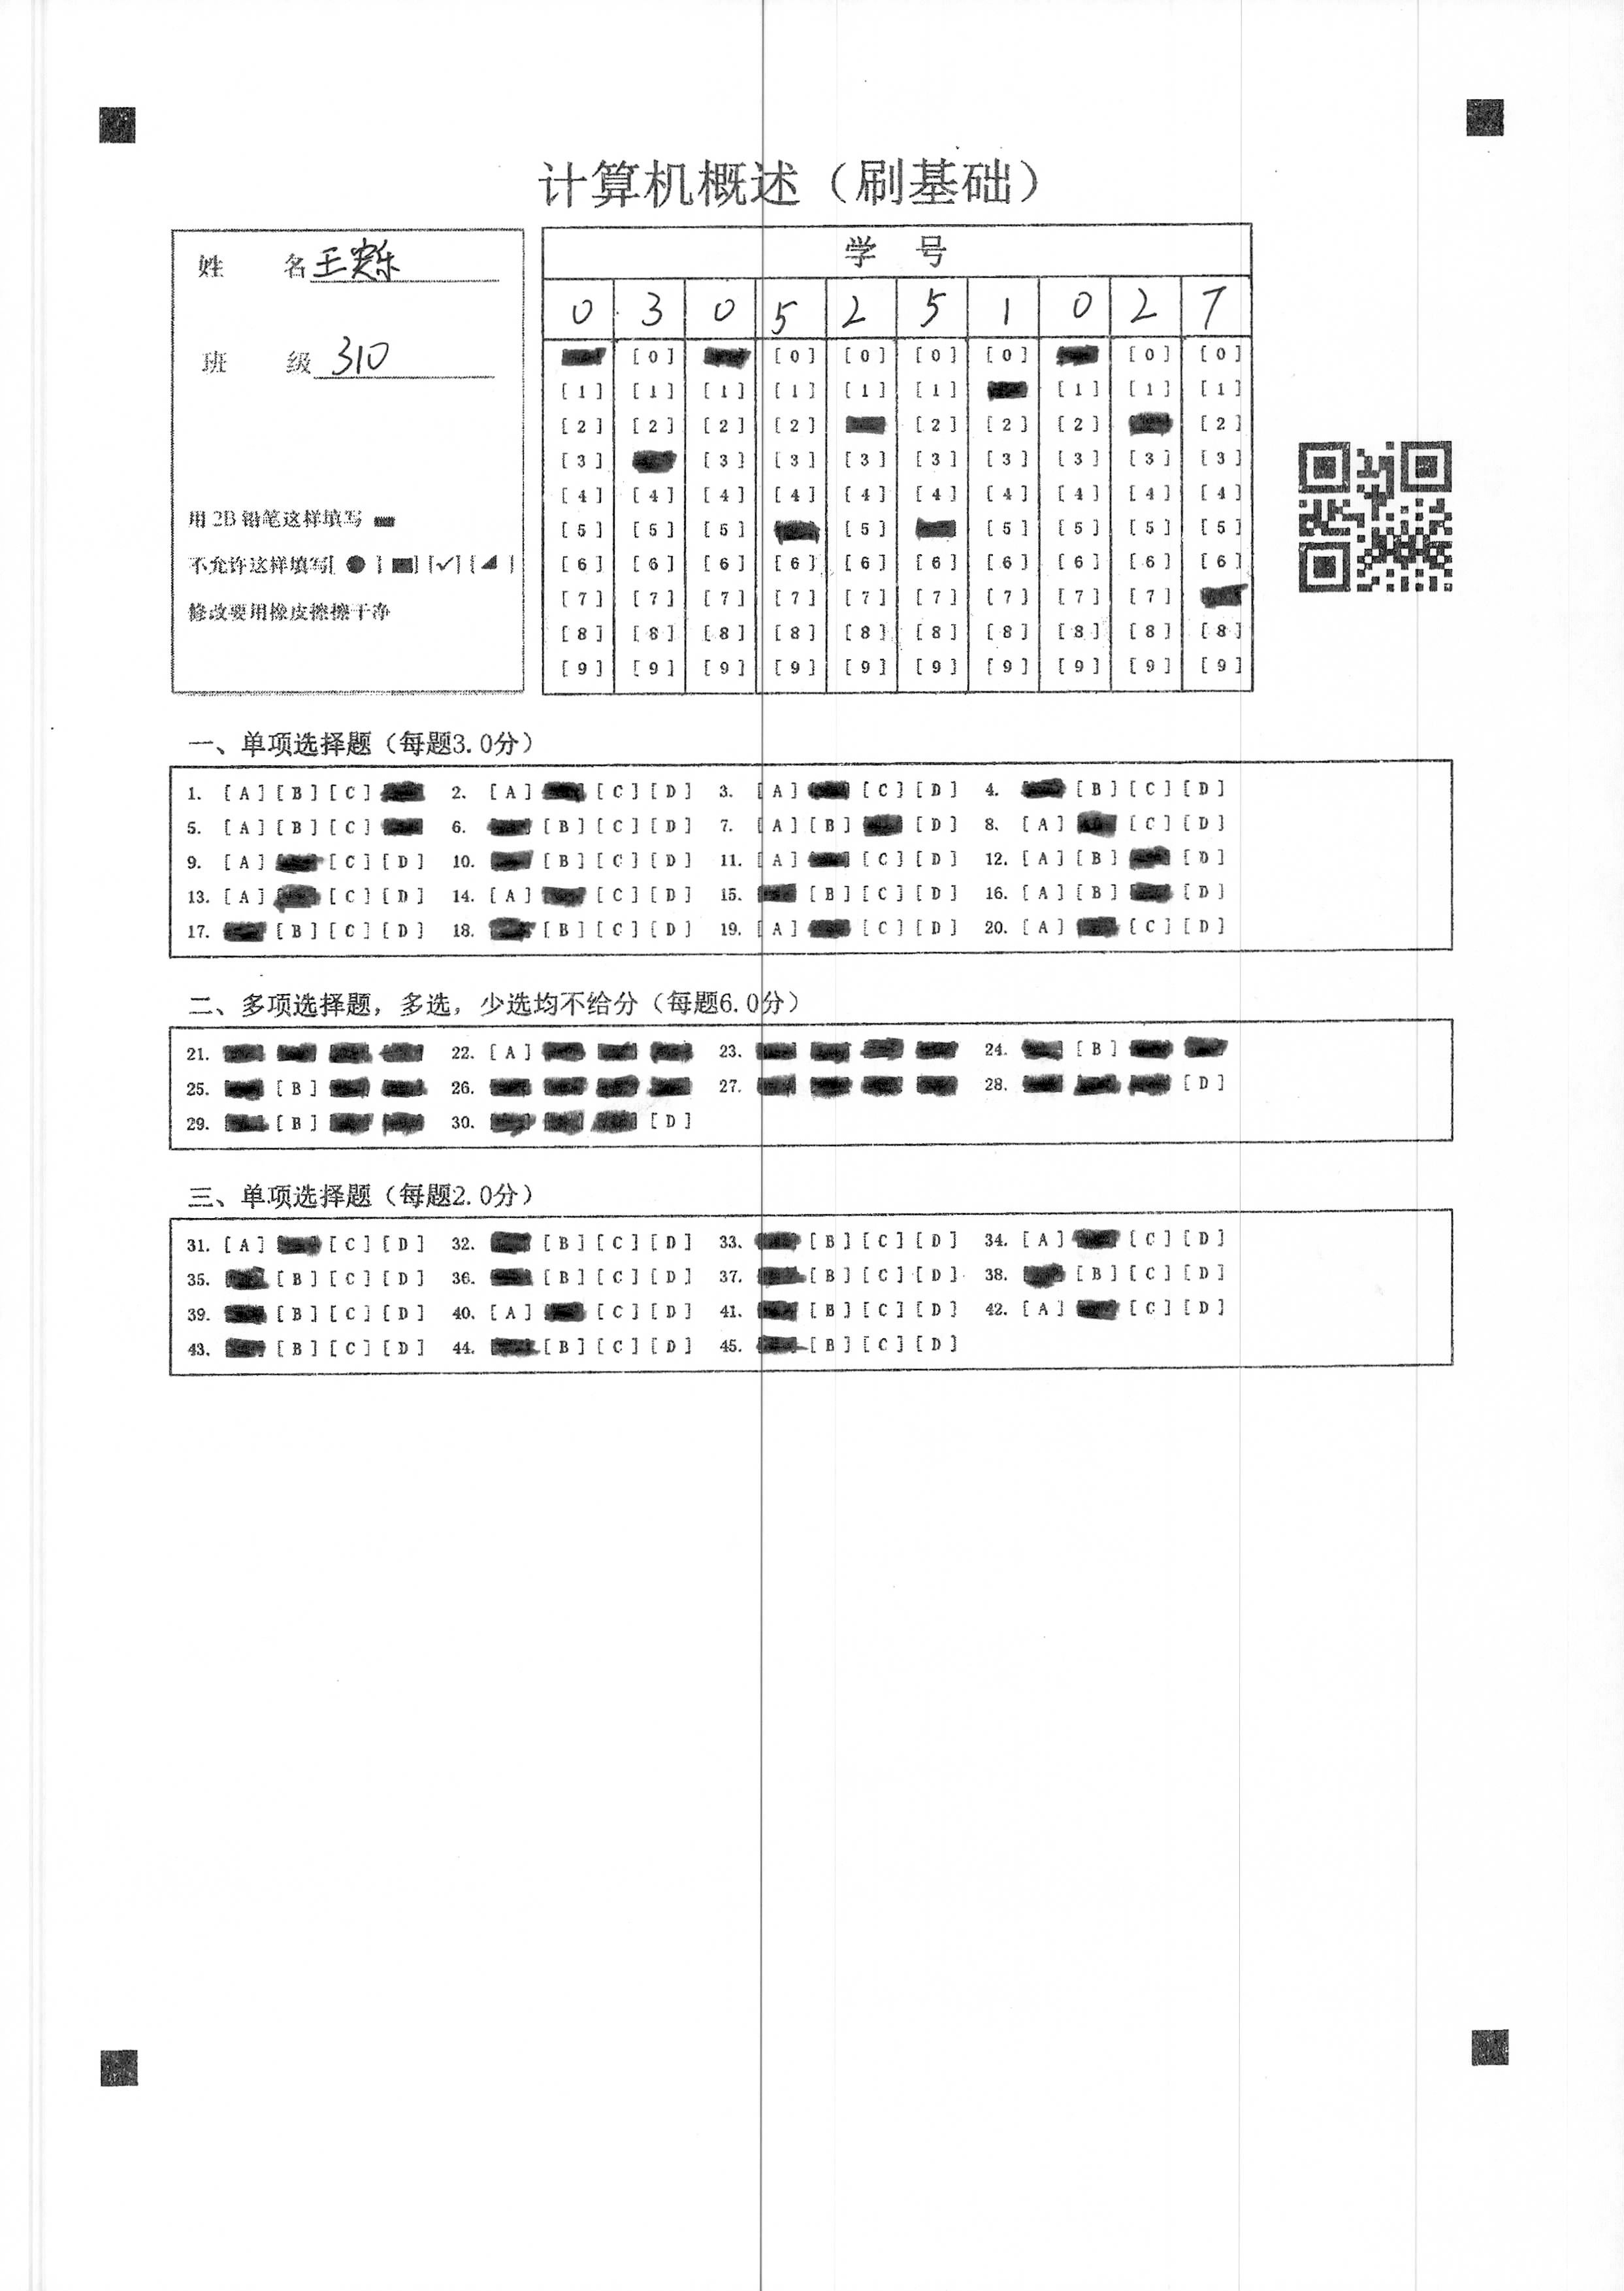 计算机概述（刷基础）
姓 名 王
班 级 310
用 2B 铅笔这样填写
不允许这样填写[ ● ] [✓] [ ]
修改要用橡皮擦擦干净
学 号
0 3 0 5 2 5 1 0 2 7
[0] [0] [0] [0] [0] [0] [0]
[1] [1] [1] [1] [1] [1] [1] [1] [1]
[2] [2] [2] [2] [2] [2] [2] [2]
[3] [3] [3] [3] [3] [3] [3] [3] [3]
[4] [4] [4] [4] [4] [4] [4] [4] [4] [4]
[5] [5] [5] [5] [5] [5] [5] [5]
[6] [6] [6] [6] [6] [6] [6] [6] [6] [6]
[7] [7] [7] [7] [7] [7] [7] [7] [7]
[8] [8] [8] [8] [8] [8] [8] [8] [8] [8]
[9] [9] [9] [9] [9] [9] [9] [9] [9] [9]
一、单项选择题（每题3.0分）
1. [A] [B] [C] 2. [A] [C] [D] 3. [A] [C] [D] 4. [B] [C] [D]
5. [A] [B] [C] 6. [B] [C] [D] 7. [A] [B] [D] 8. [A] [C] [D]
9. [A] [C] [D] 10. [B] [C] [D] 11. [A] [C] [D] 12. [A] [B] [D]
13. [A] [C] [D] 14. [A] [C] [D] 15. [B] [C] [D] 16. [A] [B] [D]
17. [B] [C] [D] 18. [B] [C] [D] 19. [A] [C] [D] 20. [A] [C] [D]
二、多项选择题，多选，少选均不给分（每题6.0分）
21. 22. [A] 23. 24. [B]
25. [B] 26. 27. 28. [D]
29. [B] 30. [D]
三、单项选择题（每题2.0分）
31. [A] [C] [D] 32. [B] [C] [D] 33. [B] [C] [D] 34. [A] [C] [D]
35. [B] [C] [D] 36. [B] [C] [D] 37. [B] [C] [D] 38. [B] [C] [D]
39. [B] [C] [D] 40. [A] [C] [D] 41. [B] [C] [D] 42. [A] [C] [D]
43. [B] [C] [D] 44. [B] [C] [D] 45. [B] [C] [D]